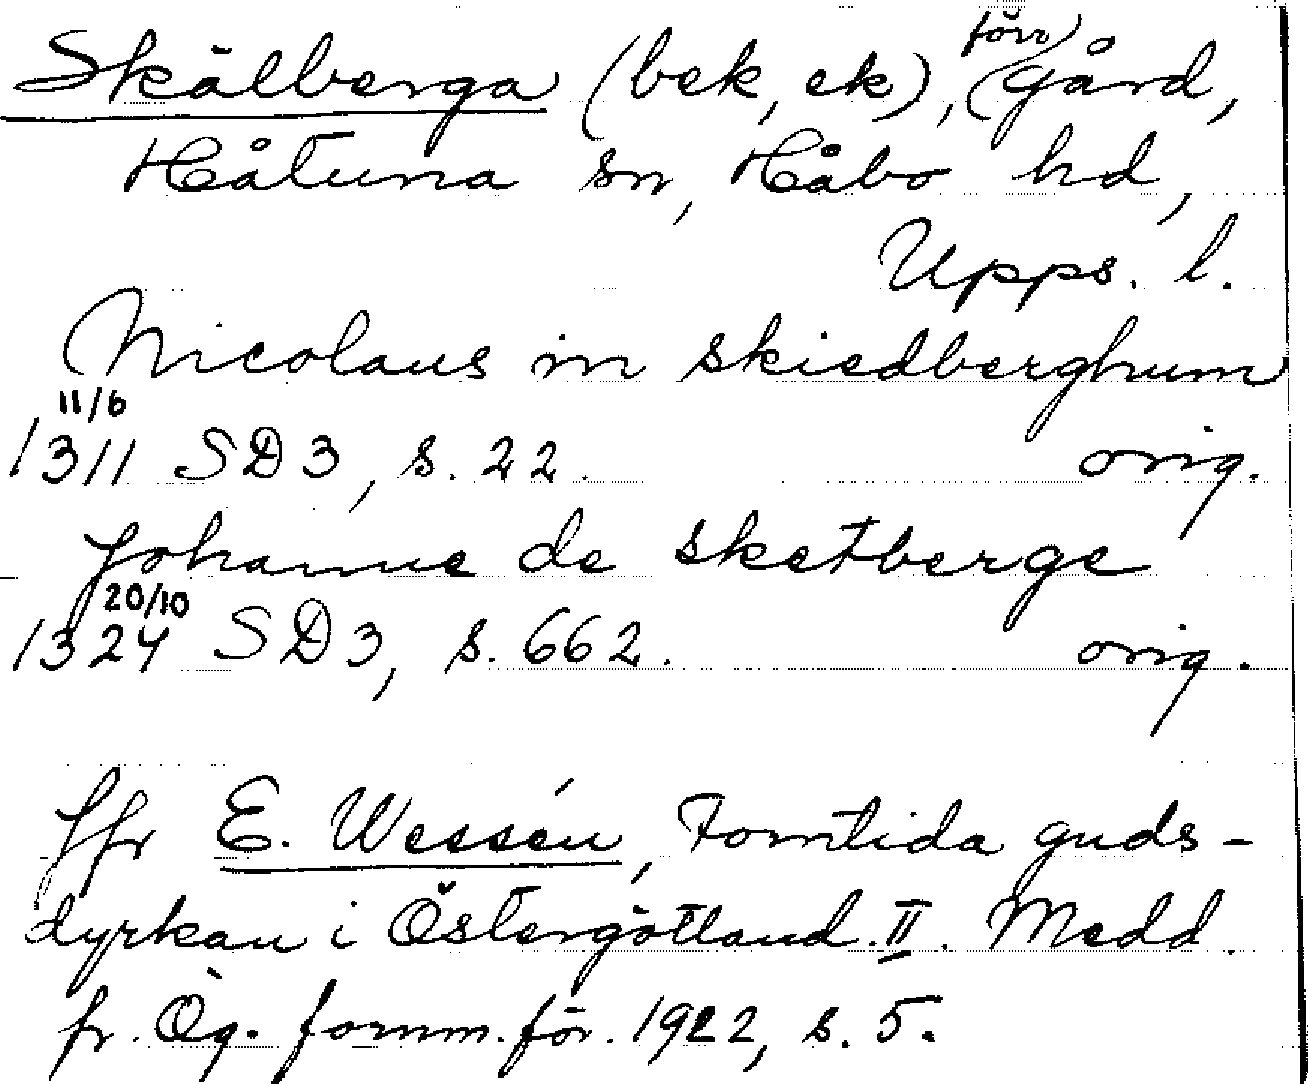 Skälberga (bek, ek), (förr) gård,
Håtuna sn, Håbo hd,
Upps. l.
Nicolaus in skiedberghum
11/6
1311 SD 3, s. 22. orig.
Johanne de sketberge
20/10
1324 SD 3, s. 662. orig.
Jfr E. Wessén, Forntida guds-
dyrkan i Östergötland. II. Medd.
fr. Ög. fornm. för. 1922, s. 5.